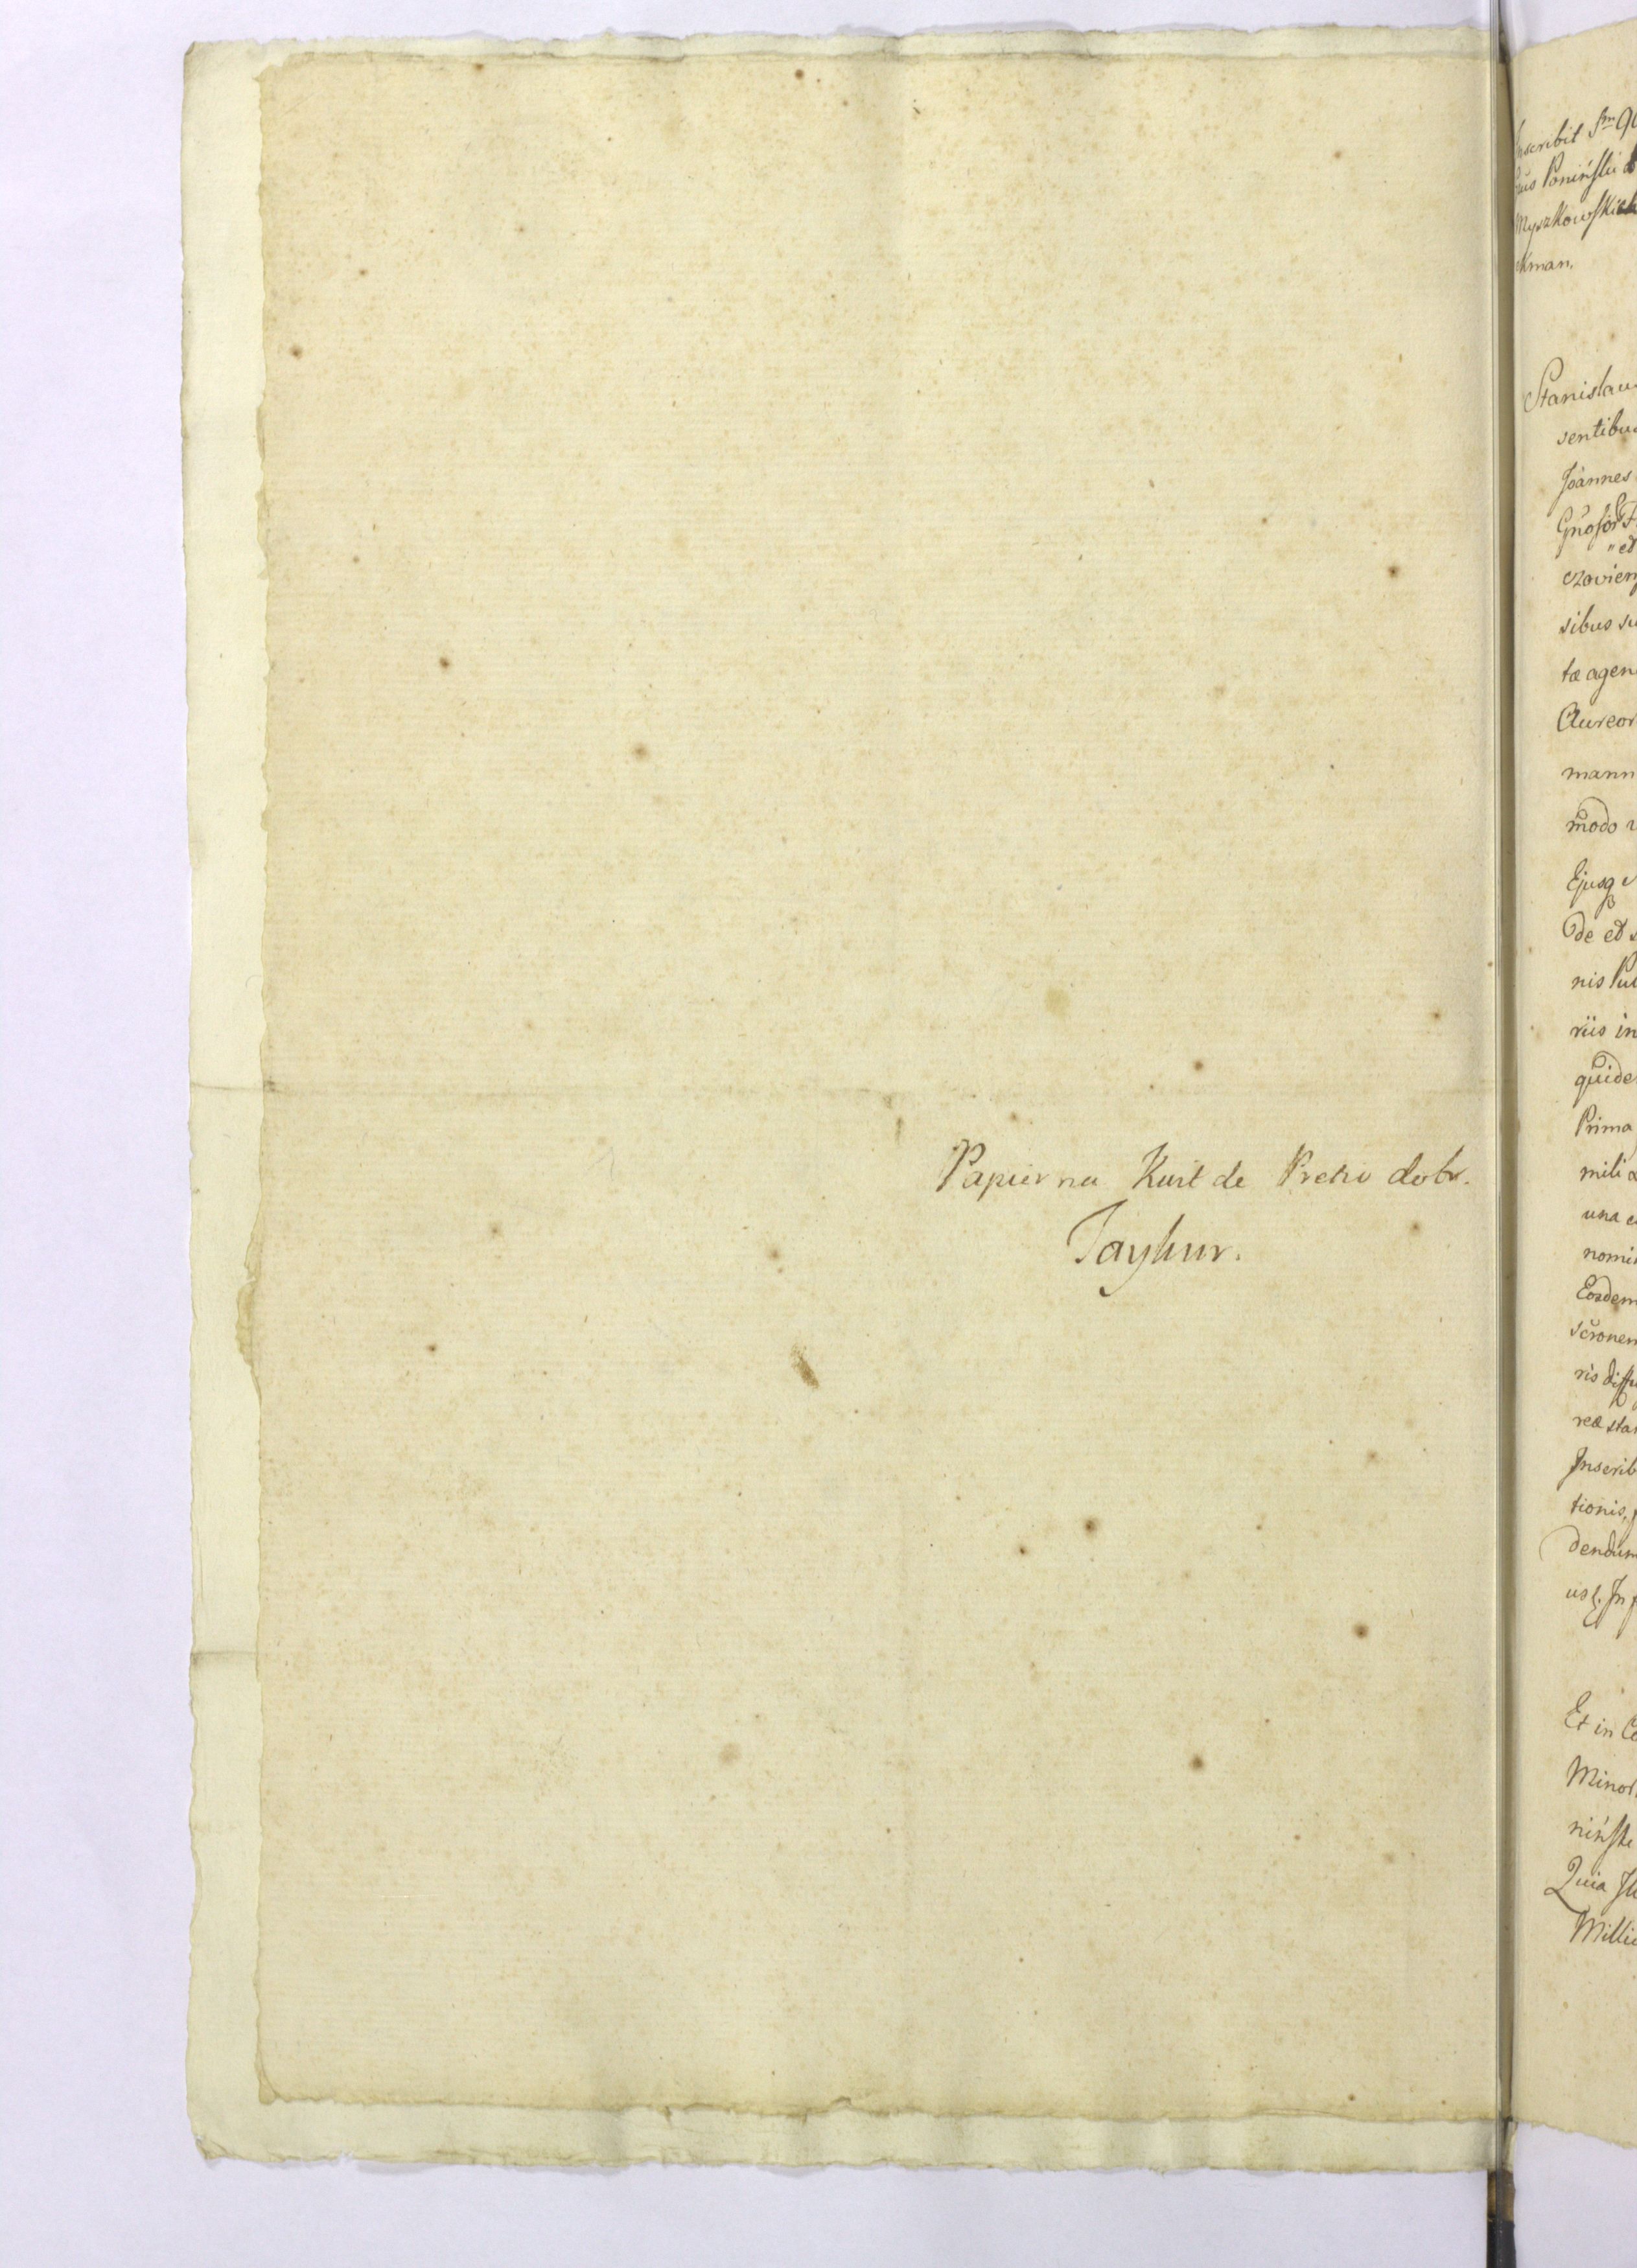 Papier na Kwit de Pretio dobr.
Tayhur.
Inscribit Sm
Poniński
Myszkowski
kman.
Stanislau
sentibus
Joannes
Gnosor
"et
czovien
sibus su
tæ agen
Aureor
mann
modo
Ejusq
De et
nis Pu
riis in
quide
Prima
mili
una
nomi
Eosdem
scronem
ris
reæ sta
Inscrib
tionis,
dendum
usq. In
Et in
Minor
niński
Quia
Millie